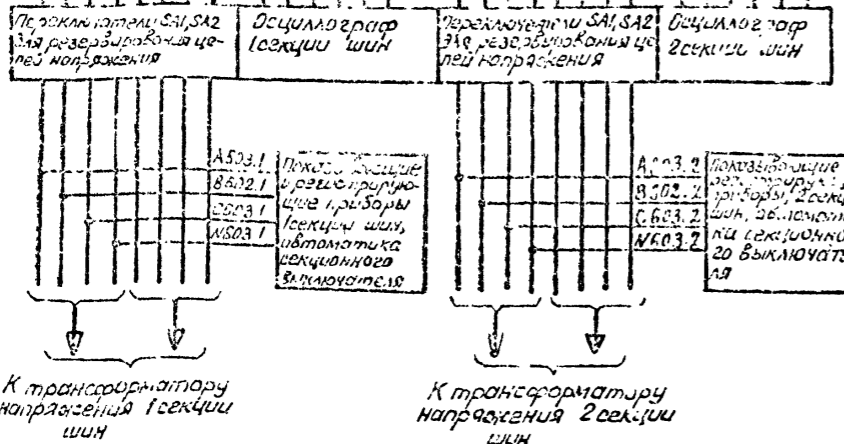 Переключатели SA1, SA2
для резервирования це-
пей напряжения
Осциллограф
1 секции шин
Переключатели SA1, SA2
для резервирования це-
пей напряжения
Осциллограф
2 секции шин
A603.1
B602.1
C603.1
N603.1
Показывающие
и регистрирую-
щие приборы
1 секции шин,
автоматика
секционного
выключателя
A603.2
B602.2
C603.2
N603.2
Показывающие
приборы, 2 секц
шин, автомати-
ка секционно-
го выключате-
ля
К трансформатору
напряжения 1 секции
шин
К трансформатору
напряжения 2 секции
шин